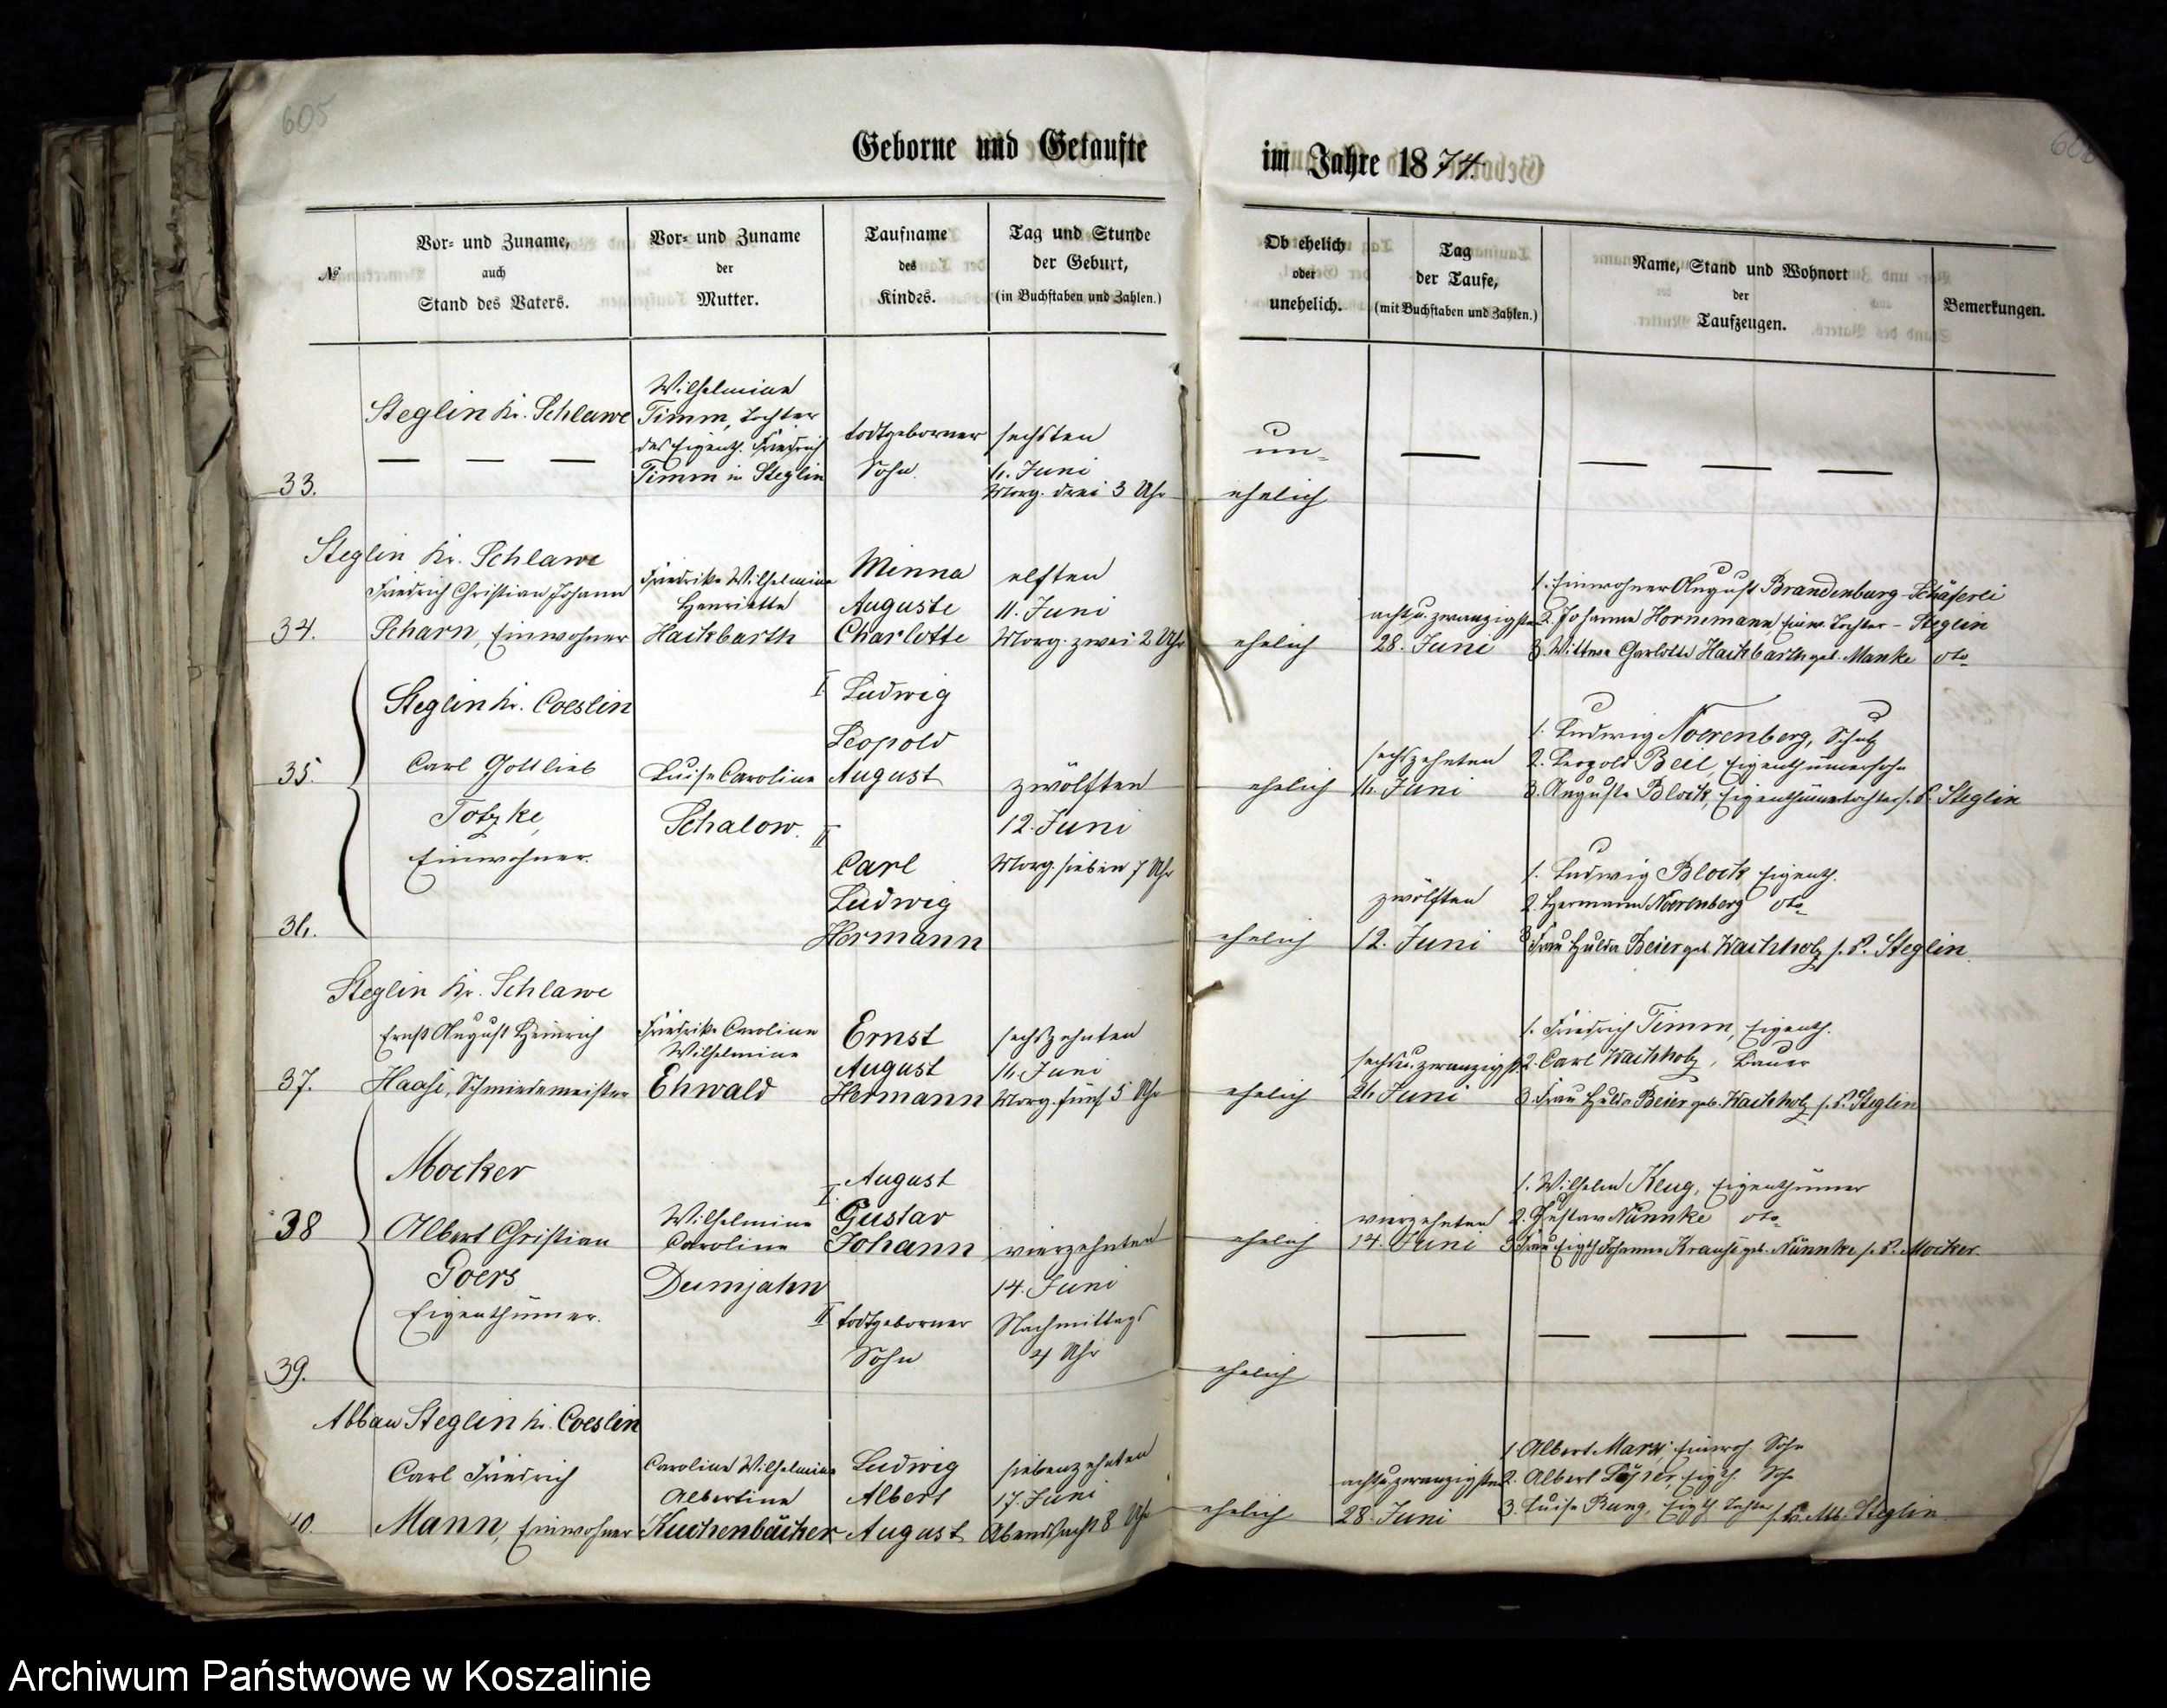 605
Geborne und Getaufte
im Jahre 1874.
№
Vor- und Zuname,
auch
Stand des Vaters.
Vor- und Zuname
der
Mutter.
Taufname
des
Kindes.
Tag und Stunde
der Geburt,
(in Buchstaben und Zahlen.)
Ob ehelich
oder
unehelich.
Tag
der Taufe,
(mit Buchstaben und Zahlen.)
Name, Stand und Wohnort
der
Taufzeugen.
Bemerkungen.
33.
Steglin Kr. Schlawe
— — —
Wilhelmine
Timm, Tochter
des Eigenth. Friedrich
Timm in Steglin
todtgeborner
Sohn.
sechsten
6. Juni
Morg. drei 3 Uhr
un-
ehelich
—
— — —
34.
Steglin Kr. Schlawe
Friedrich Christian Johann
Scharn, Einwohner
Friedrike Wilhelmine
Henriette
Hackbarth
Minna
Auguste
Charlotte
elften
11. Juni
Morg. zwei 2 Uhr
ehelich
acht u. zwanzigsten
28. Juni
1. Einwohner August Brandenburg - Schäferei
2. Johanne Hornemann Einw. Tochter - Steglin
3. Wittwe Charlotte Hackbarth geb. Manke dto
35.
36.
Steglin Kr. Coeslin
Carl Gottlieb
Totzke,
Einwohner.
Luise Caroline
Schalow.
I Ludwig
Leopold
August
II
Carl
Ludwig
Hermann
zwölften
12. Juni
Morg. sieben 7 Uhr
ehelich
sechszehnten
16. Juni
1. Ludwig Noerenberg, Schulz
2. Leopold Beil, Eigenthümersohn
3. Auguste Block, Eigenthümertochter s. S. Steglin
ehelich
zwölften
12. Juni
1. Ludwig Block Eigenth.
2. Hermann Noerenberg dto
3. Frau Hulda Beier geb. Wachholz s. S. Steglin.
37.
Steglin Kr. Schlawe
Ernst August Heinrich
Haase, Schmiedemeister
Friedrike Caroline
Wilhelmine
Ehwald
Ernst
August
Hermann
sechszehnten
16. Juni
Morg. fünf 5 Uhr
ehelich
sechs u. zwanzigst.
26. Juni
1. Friedrich Timm, Eigenth.
2. Carl Wachholz, Bauer
3. Frau Hulda Beier geb. Wachholz s. S. Steglin
38
39.
Mocker
Albert Christian
Goers
Eigenthümer.
Wilhelmine
Caroline
Dumjahn
I August
Gustav
Johann
II todtgeborner
Sohn
vierzehnten
14. Juni
Nachmittags
4 Uhr
ehelich
vierzehnten
14. Juni
1. Wilhelm Keug, Eigenthümer
2. Gustav Nünnke dto
3. Frau Eigth Johanne Krause geb. Nünnke s. S. Mocker.
ehelich
—
— — —
40.
Abbau Steglin Kr. Coeslin
Carl Friedrich
Mann, Einwohner
Caroline Wilhelmine
Albertine
Kuchenbäcker
Ludwig
Albert
August
siebenzehnten
17. Juni
Abends acht 8 Uhr
ehelich
acht u. zwanzigsten
28. Juni
1. Albert Marx, Einwoh. Sohn
2. Albert Eigth. Sohn
3. Luise Bung, Eigth. Tochter s. S. Abb. Steglin
Archiwum Państwowe w Koszalinie